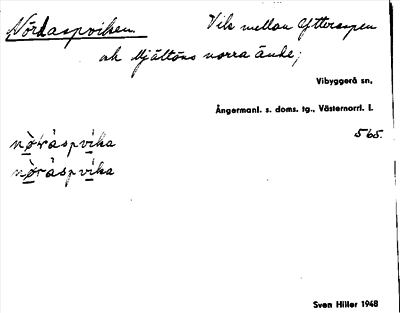 Nördaspviken. Vik mellan Ytteraspen
och Mjältöns norra ände;
Vibyggerå sn.
Ångermanl. s. doms. tg., Västernorrl. l.
565.
nò̱ràspvi̱ka
nø̱̀ràspvi̱ka
Sven Hiller 1948